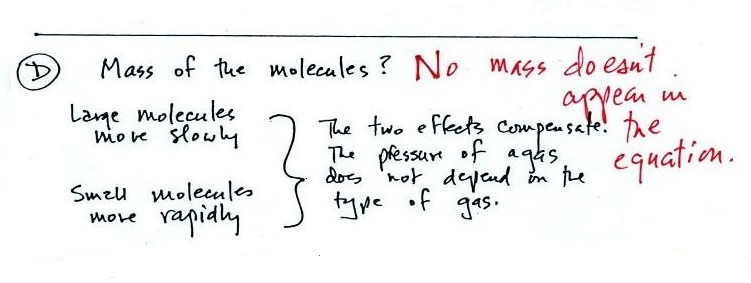 D Mass of the molecules? No mass doesn't
appear in
the
equation.
Large molecules
move slowly
Small molecules
move rapidly
The two effects compensate.
The pressure of a gas
does not depend on the
type of gas.